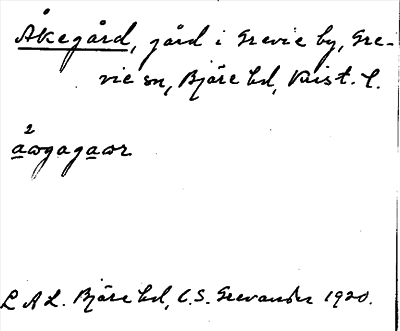 Åkegård, gård i Grevie by, Gre-
vie sn, Bjäre hd, Krist. l.
2
a͟wgaga͟wr
L A L. Bjäre hd, C.S. Grevander 1920.